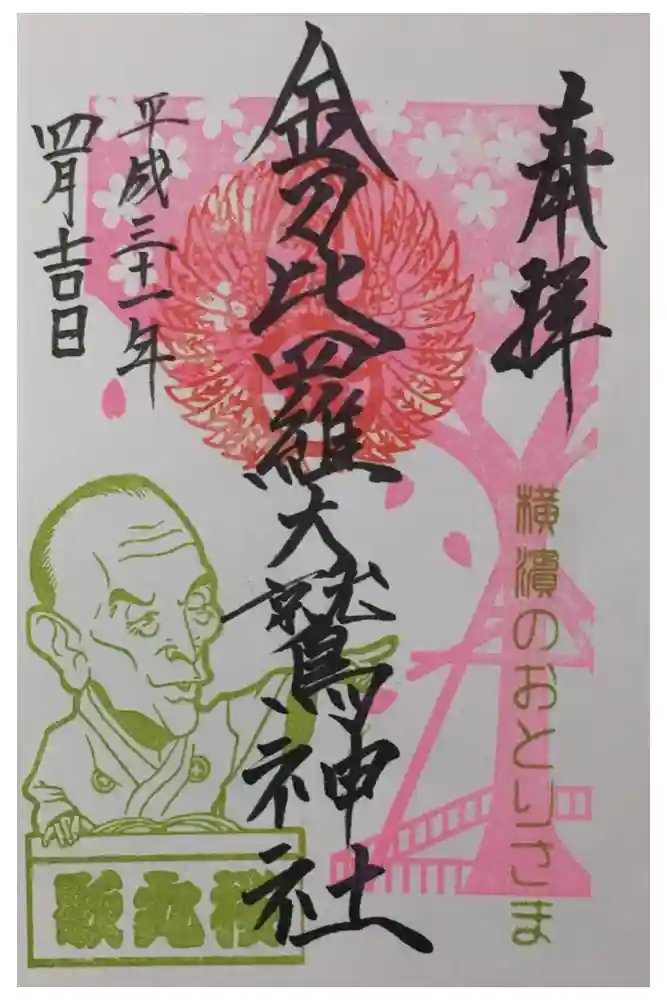 奉拝
横濱のおとりさま
金刀比羅大鷲神社
平成三十一年
四月吉日
歌丸桜